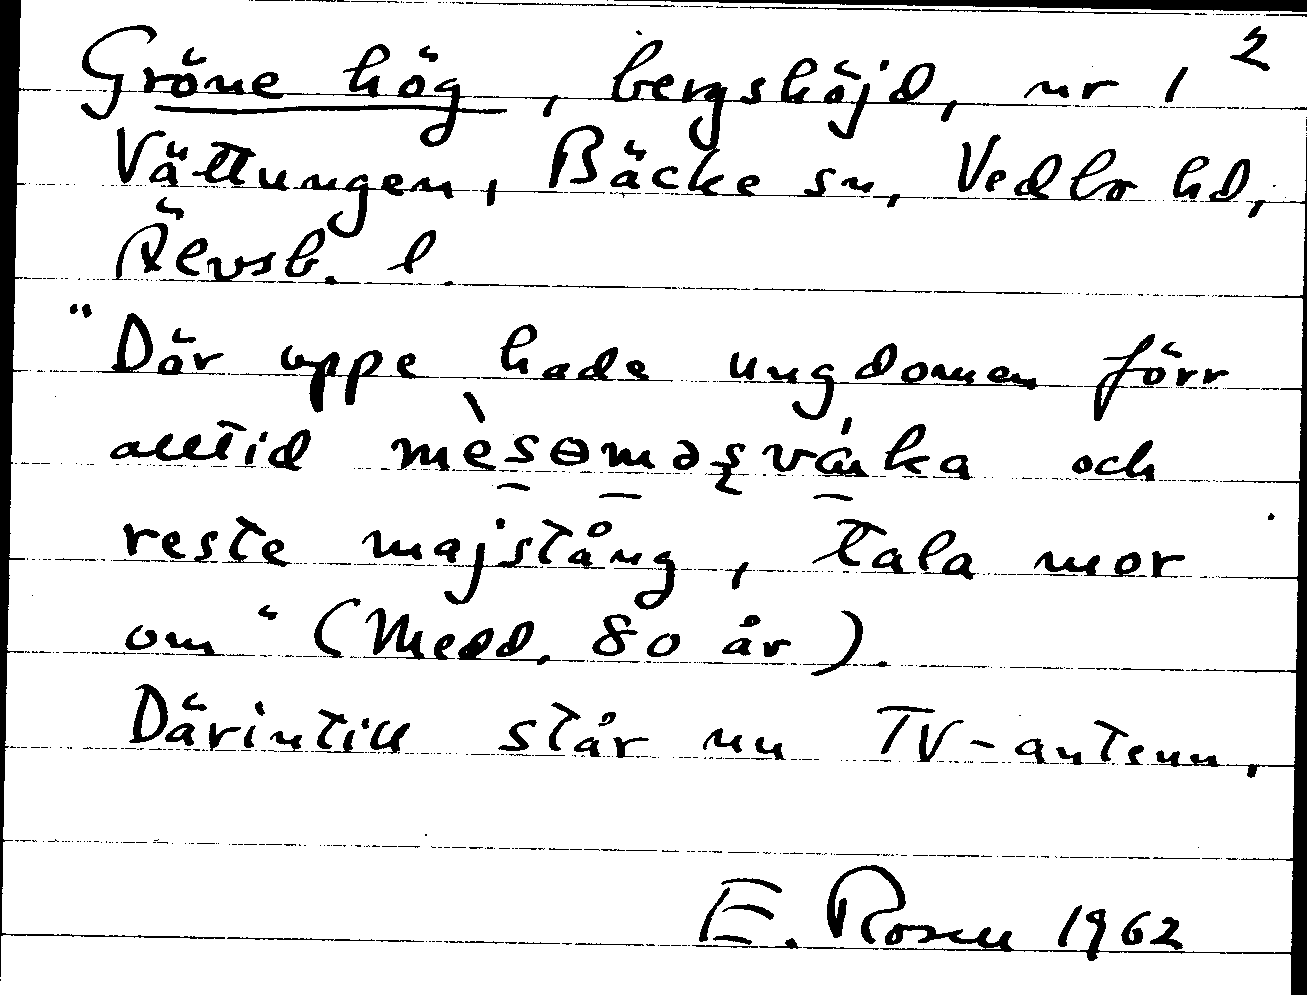 2
Gröne hög, bergshöjd, nr 1
Vättungen, Bäcke sn, Vedbo hd,
Älvsb. l.
"Där uppe hade ungdomen förr
alltid och
reste majstång, tala mor
om" (Medd. 80 år).
Därintill står nu TV-antenn.
E. Rosen 1962